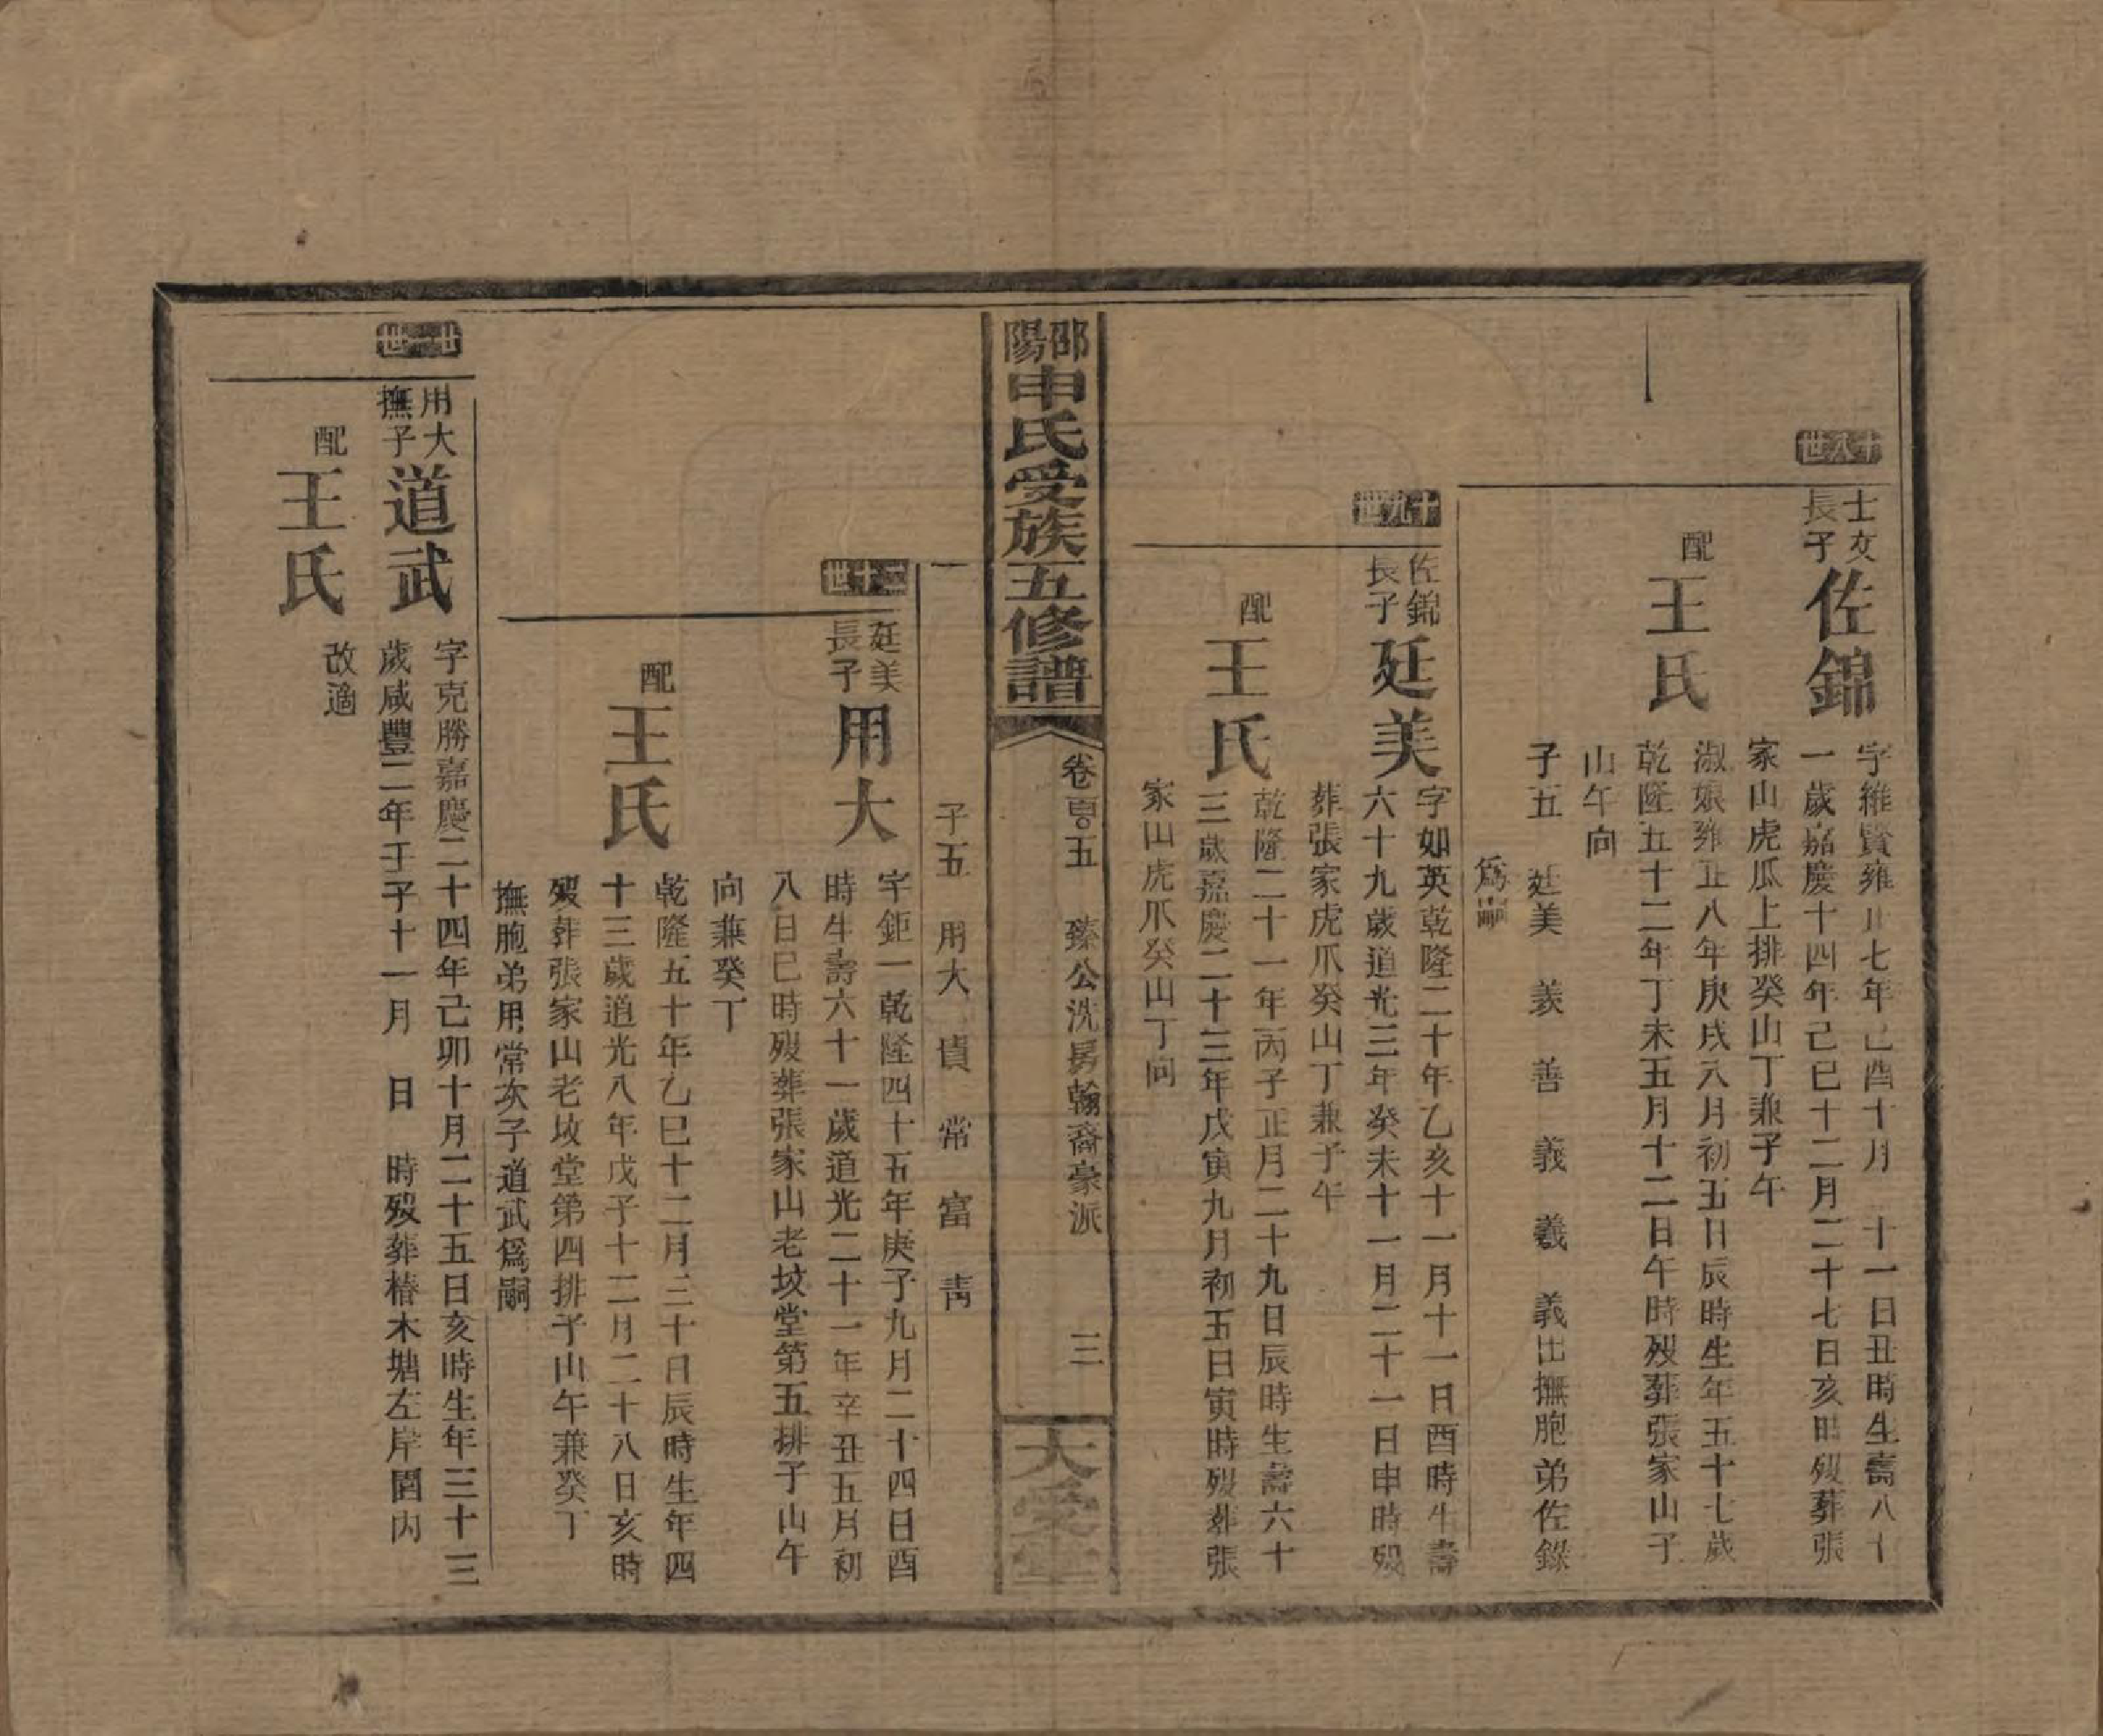 十八世
士文長子
佐錦
字維賢雍正七年己酉十月 十一日丑時生壽八十
一歲嘉慶十四年己巳十二月二十七日亥時歿葬張
家山虎瓜上排癸山丁兼子午
配
王氏
淑娘雍正八年庚戌八月初五日辰時生年五十七歲
乾隆五十二年丁未五月十二日午時歿葬張家山子
山午向
子五 廷美 義 善 義 羲 義出撫胞弟佐錄
爲嗣
十九世
佐錦長子
廷美
字如英乾隆二十年乙亥十一月十一日酉時生壽
六十九歲道光三年癸未十一月二十一日申時歿
葬張家虎爪癸山丁兼子午
配
王氏
乾隆二十一年丙子正月二十九日辰時生壽六十
三歲嘉慶二十三年戊寅九月初五日寅時歿葬張
家山虎爪癸山丁向
邵陽申氏受族五修譜
卷百〇五 臻公洗房翰裔豪派
三
大受堂
子五 用大 貞 常 富 靑
二十世
廷美長子
用大
字鉅一乾隆四十五年庚子九月二十四日酉
時生壽六十一歲道光二十一年辛丑五月初
八日巳時歿葬張家山老坟堂第五排子山午
向兼癸丁
配
王氏
乾隆五十年乙巳十二月三十日辰時生年四
十三歲道光八年戊子十二月二十八日亥時
歿葬張家山老坟堂第四排子山午兼癸丁
撫胞弟用常次子道武爲嗣
廿一世
用大撫子
道武
字克勝嘉慶二十四年己卯十月二十五日亥時生年三十三
歲咸豐二年壬子十一月 日 時歿葬椿木塘左岸園內
配
王氏
改適